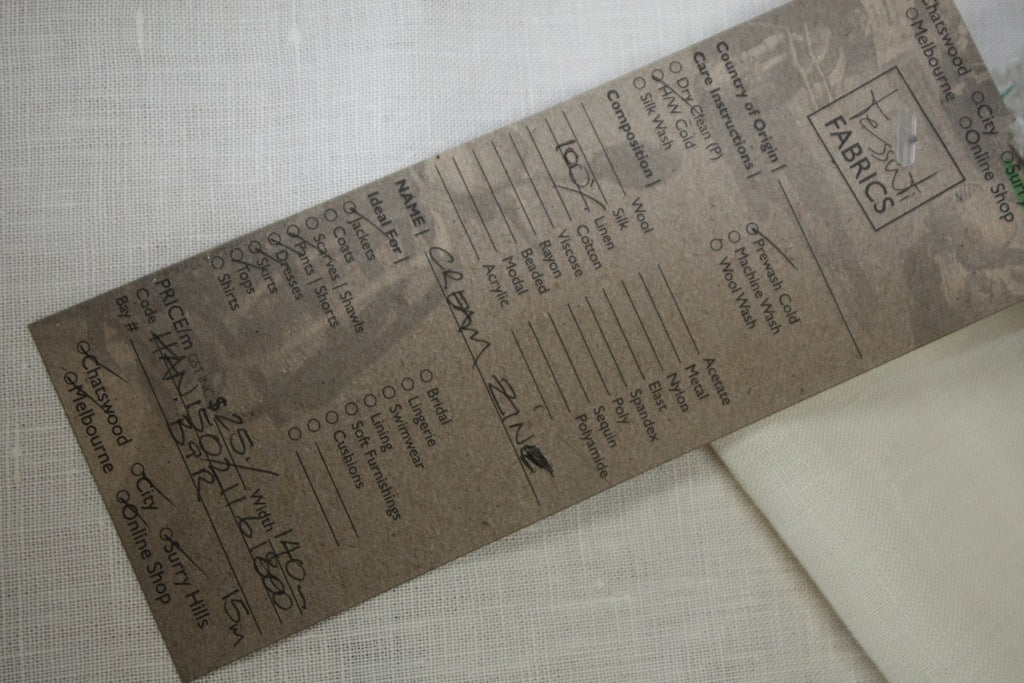 Chatswood
Melbourne
City
Online Shop
Surry
Tessuti
FABRICS
Country of Origin |
Care Instructions |
Dry Clean (P)
H/W Cold
Silk Wash
Prewash Cold
Machine Wash
Wool Wash
Composition |
Wool
Silk
100% Linen
Cotton
Viscose
Rayon
Beaded
Modal
Acrylic
Acetate
Metal
Nylon
Elast
Spandex
Poly
Sequin
Polyamide
NAME | CREAM ZINC
Ideal For |
Jackets
Coats
Scarves | Shawls
Pants | Shorts
Dresses
Skirts
Tops
Shirts
Bridal
Lingerie
Swimwear
Lining
Soft Furnishings
Cushions
PRICE/m GST INC $25/ Width 140
Code
Bay # 15m
Chatswood
Melbourne
City
Online Shop
Surry Hills